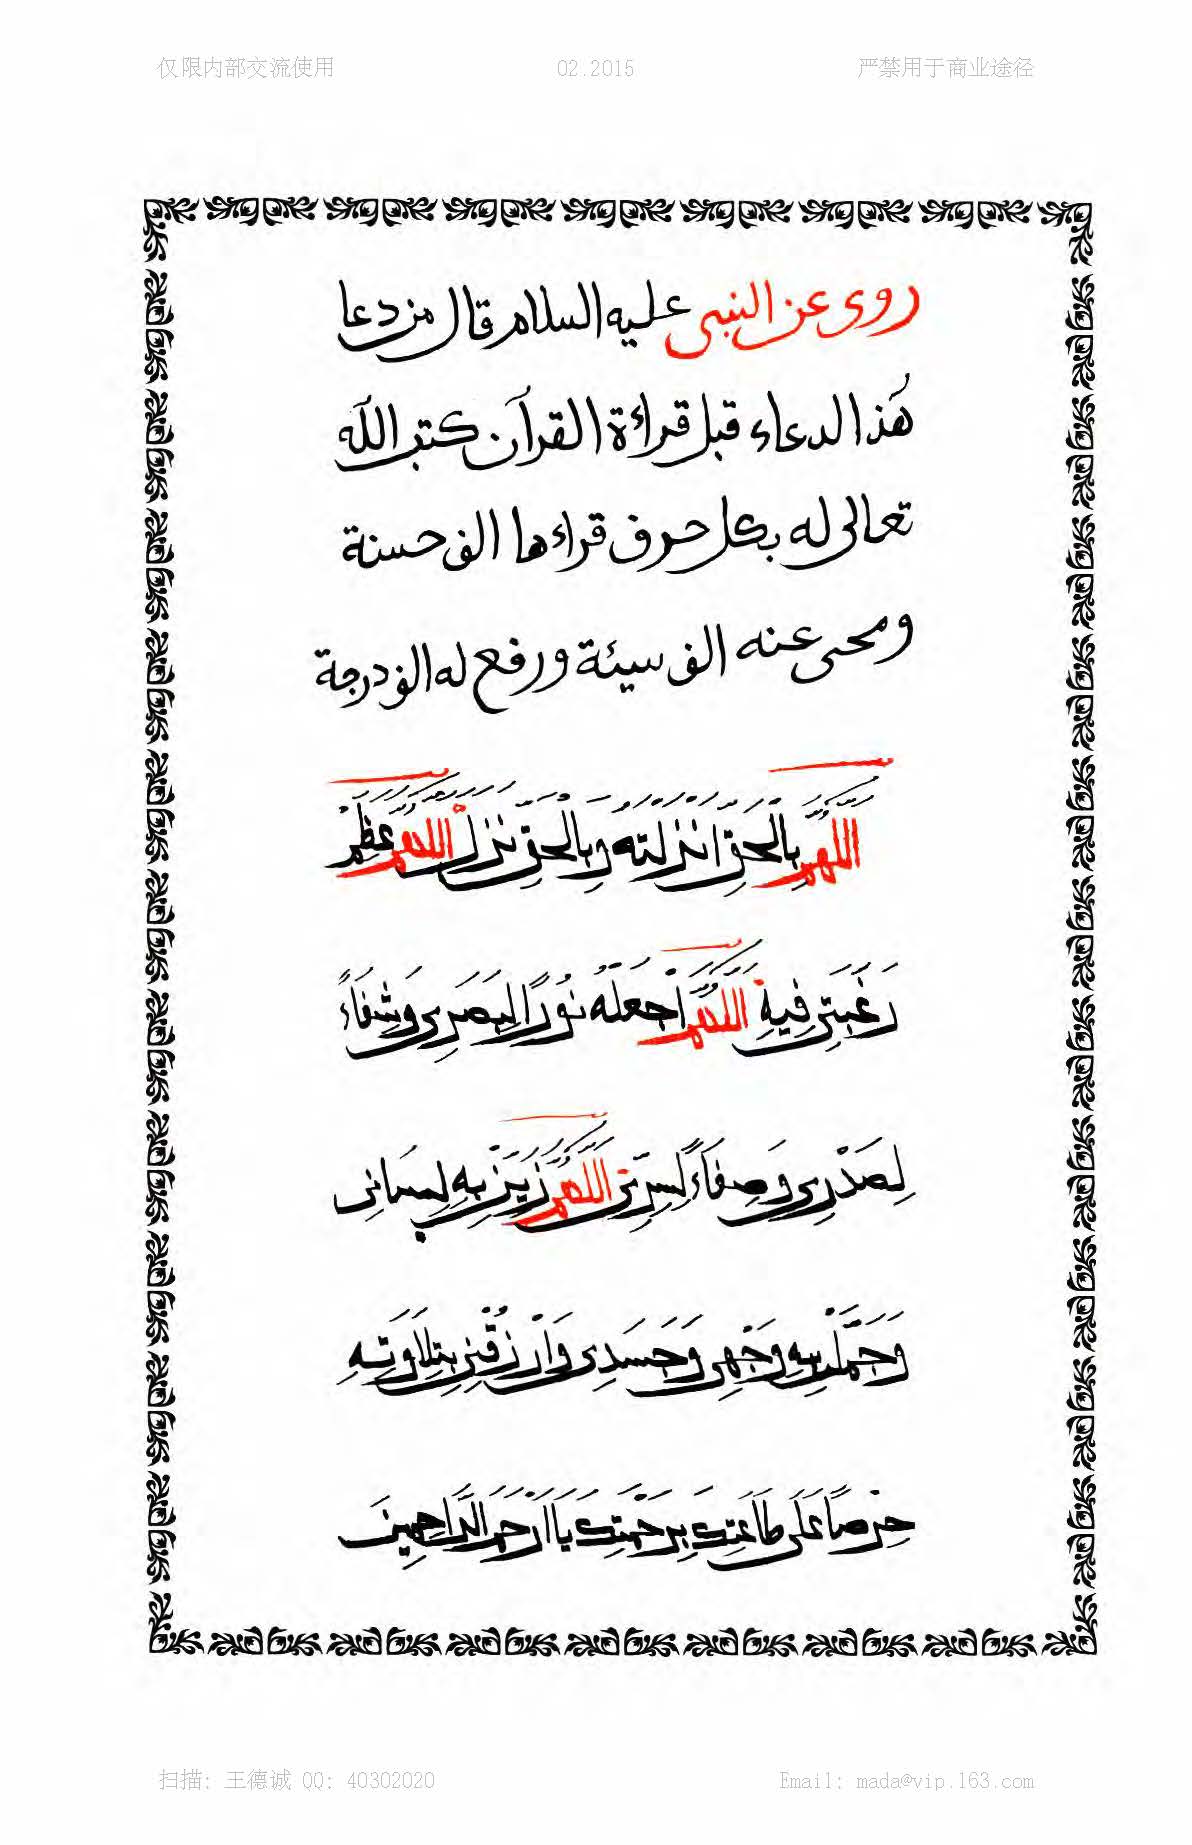 仅限内部交流使用 02.2015 严禁用于商业途径
روى عن النبى عليه السلام قال من دعا
هٰذا الدعاء قبل قراءة القرآن كتب الله
تعالى له بكل حرف قراءها الف حسنة
ومحى عنه الف سيئة ورفع له الف درجة
اَللّٰهُمَّ بِالْحَقِّ اَنْزَلْتَهُ وَبِالْحَقِّ نَزَلَ اَللّٰهُمَّ عَظِّمْ
رَغْبَتِى فِيهِ اَللّٰهُمَّ اجْعَلْهُ نُورًا لِبَصَرِى وَشِفَاءً
لِصَدْرِى وَصِفَاءً لِسِرِّى اَللّٰهُمَّ زَيِّنْ بِهِ لِسَانِى
وَجَمِّلْ بِهِ وَجْهِى وَجَسَدِى وَارْزُقْنِى بِتِلَاوَتِهِ
حِرْصًا عَلَى طَاعَتِكَ بِرَحْمَتِكَ يَا اَرْحَمَ الرَّاحِمِينَ
扫描: 王德诚 QQ: 40302020 Email: mada@vip.163.com